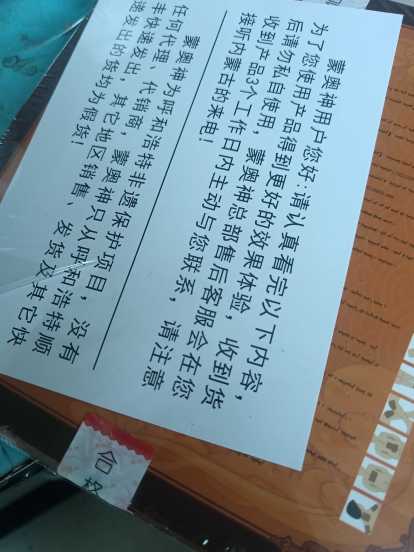 蒙奥神用户您好:请认真看完以下内容,
为了您使用产品得到更好的效果体验,收到货
后请勿私自使用,蒙奥神总部售后客服会在您
收到产品3个工作日内主动与您联系,请注意
接听内蒙古的来电!
蒙奥神为呼和浩特非遗保护项目,没有
任何代理、代销商,蒙奥神只从呼和浩特顺
丰快递发出,其它地区销售、发货及其它快
递发出的货均为假货!
合格